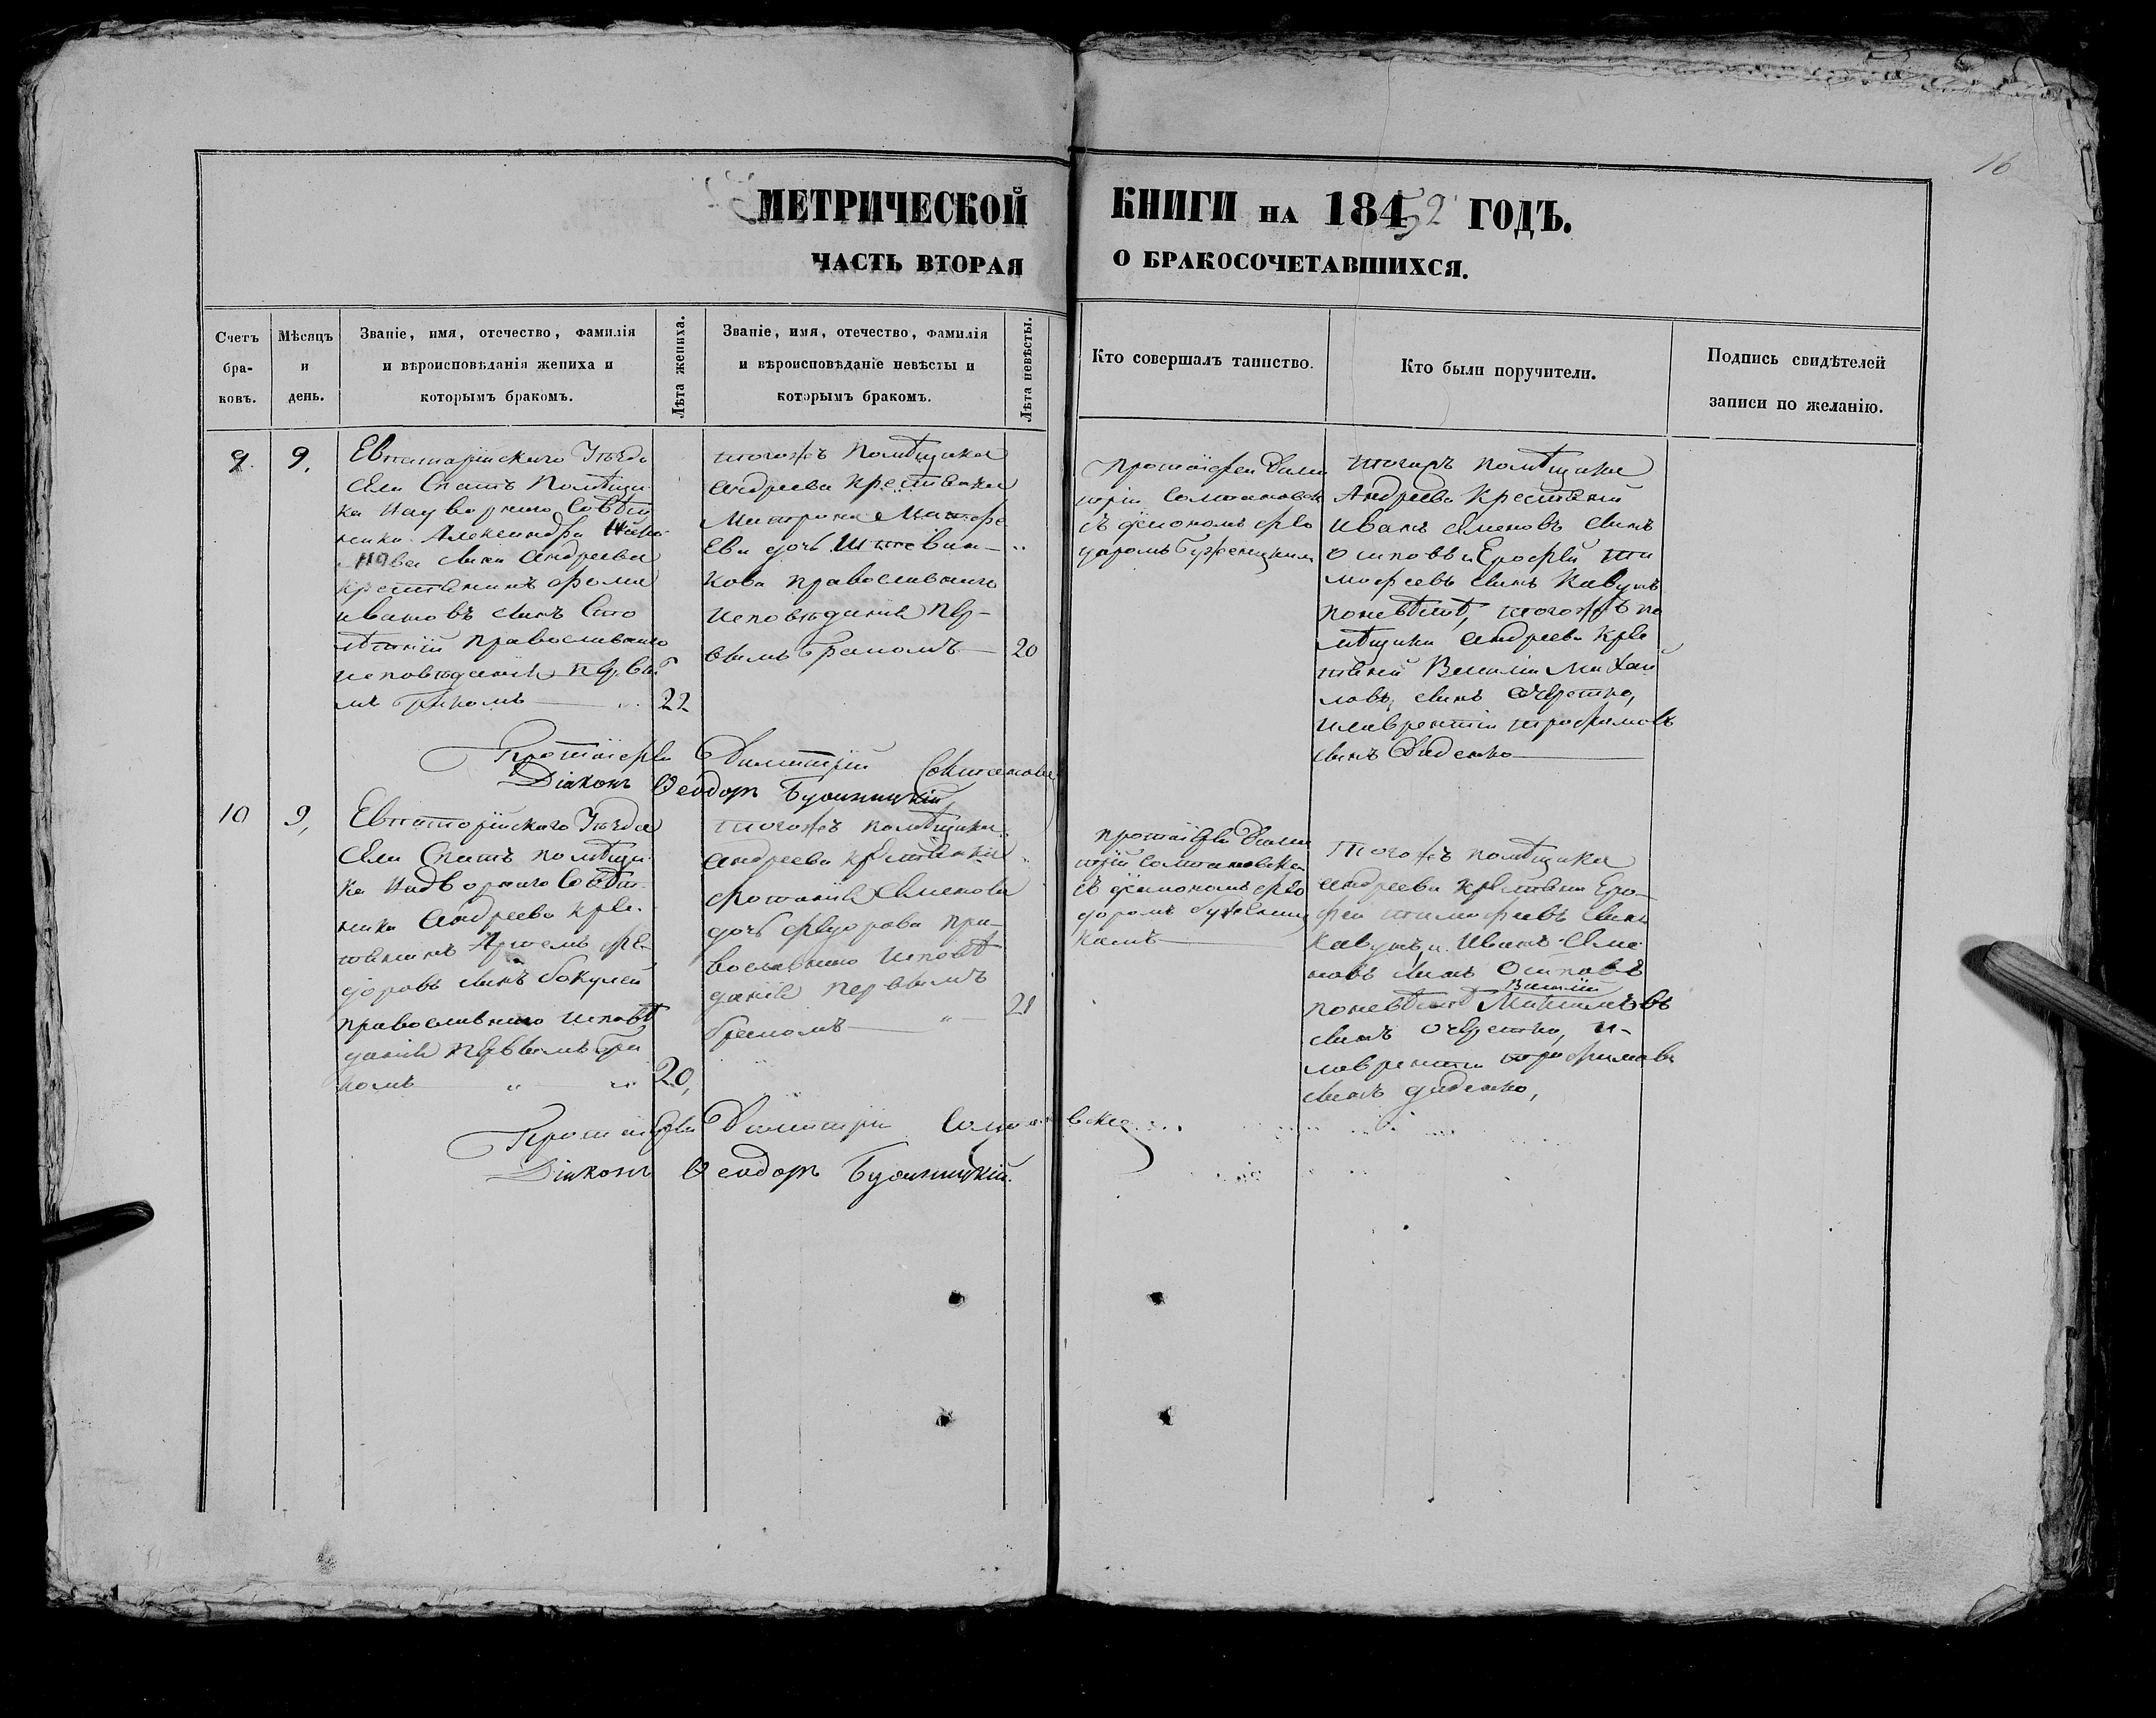 16
МЕТРИЧЕСКОЙ КНИГИ НА 1852 ГОДЪ.
ЧАСТЬ ВТОРАЯ О БРАКОСОЧЕТАВШИХСЯ.
Счетъ
бра-
ковъ.
Мѣсяцъ
и
день.
Званіе, имя, отечество, фамилія
и вѣроисповѣданія жениха и
которымъ бракомъ.
Лѣта жениха.
Званіе, имя, отечество, фамилія
и вѣроисповѣданіе невѣсты и
которымъ бракомъ.
Лѣта невѣсты.
Кто совершалъ таинство.
Кто были поручители.
Подпись свидѣтелей
записи по желанію.
9.
9,
Евпаторійскаго Уѣзда
Села Спатъ Помѣщи
ка Надворнаго Совѣт
ника Александра Ива
нова сина Андреева
крестянинъ фома
ивановъ синъ
православнаго
исповѣданія первы
мъ бракомъ
22
тогожъ Помѣщика
андреева крестянка
Матрона
дочь
кова православнаго
исповѣданія пер-
вымъ бракомъ
20
протоіерей Дими
трій
съ діакономъ фео
доромъ
тогожъ помѣщика
Андреева Крестяній
Иванъ Симновъ синъ
Осиповъ и Ерофей ти
мофеевъ синъ Кавунъ
поневѣстѣ, тогожъ по
мѣщика андреева кре
стяній Василій Михай
ловъ синъ очеретно,
илаврентій трофимовъ
синъ Диденко
Протоіерей Димитрій
Діаконъ Ѳеодоръ
10
9,
Евпаторійскаго Уѣзда
Села Спатъ помѣщи
ка Надворнаго Совѣт
ника Андреева кре
стянинъ Артемъ фе
доровъ синъ бокулей
православнаго исповѣ
данія первымъ бра
комъ
20,
тогожъ помѣщика
андреева крестянка
фотинія Семенова
дочь федорова пра
вославнаго исповѣ
данія первымъ
бракомъ
21
протоіерей Дими
трій
съ діакономъ фео
доромъ
кимъ
тогожъ помѣщика
андреева крестяни Еро
фей тимофеевъ синъ
кавунъ и Иванъ Семе
новъ синъ Осиповъ
Василій
поневѣстѣ Михаиловъ
синъ очеретно, и
лаврентій трофимовъ
синъ диденко,
Протоіерей Димитрій
Діаконъ Ѳеодоръ